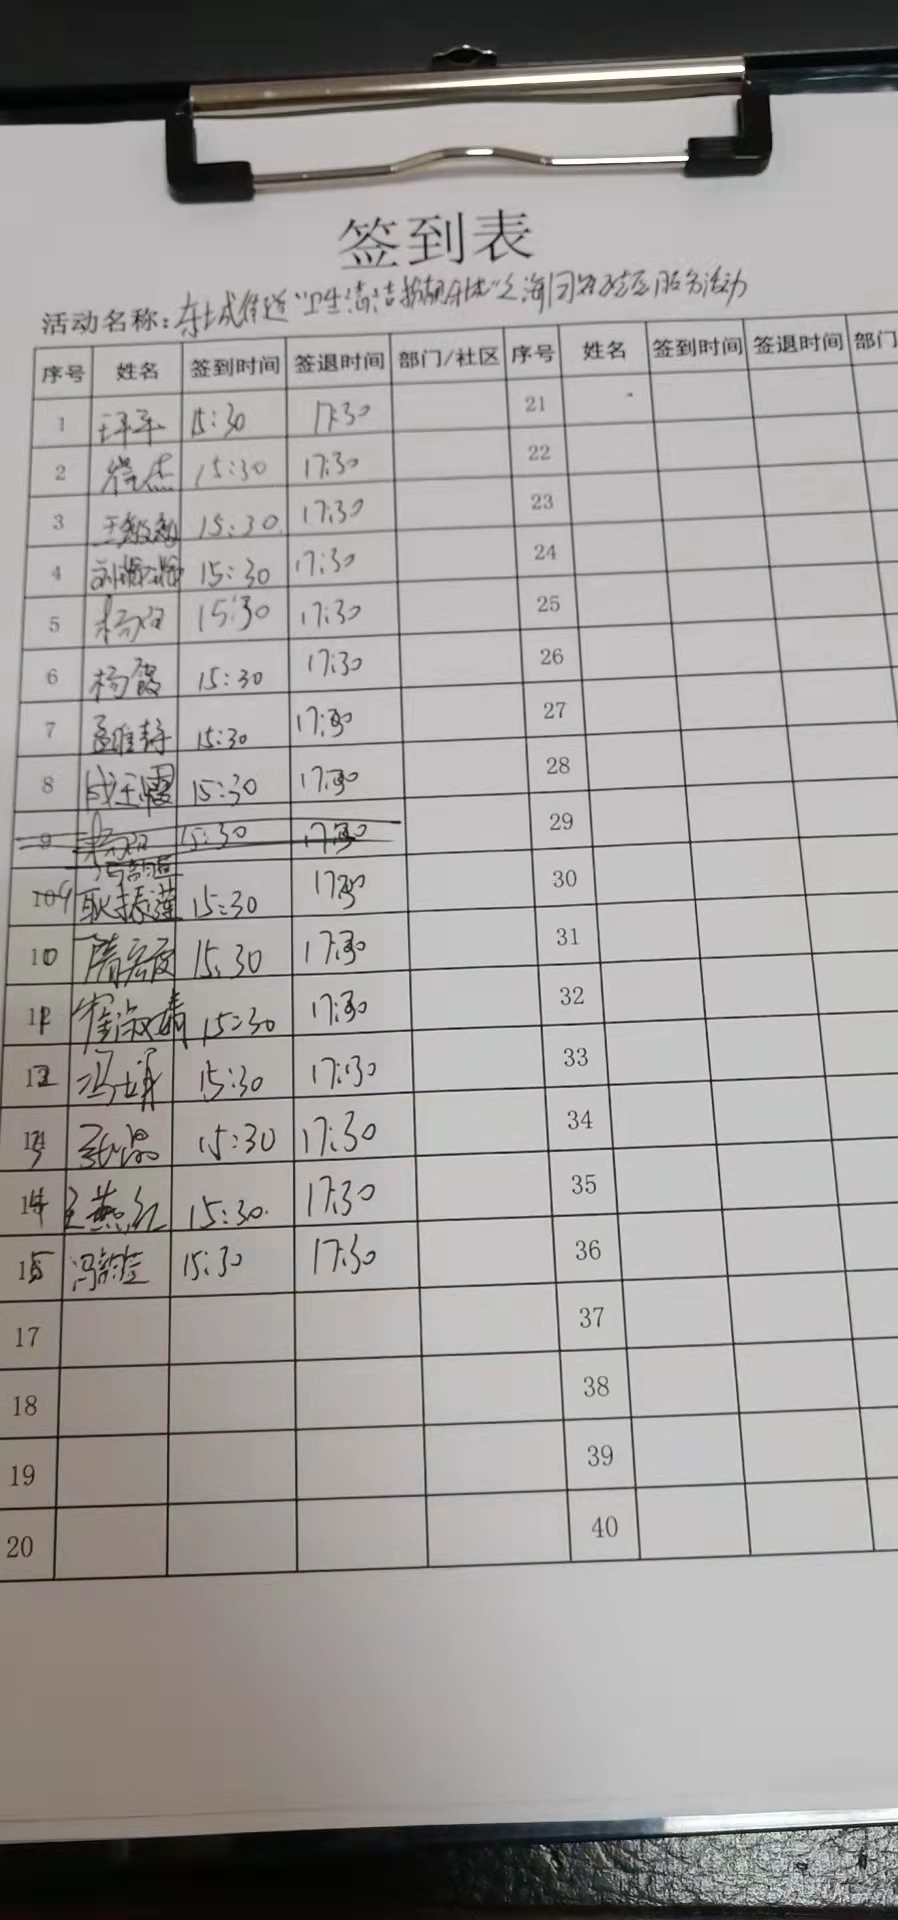 签到表
活动名称：东城街道"卫生清洁 服务活动
序号 姓名 签到时间 签退时间 部门/社区 序号 姓名 签到时间 签退时间 部门
1 15:30 17:30 21
2 杰 15:30 17:30 22
3 王敏 15:30 17:30 23
4 刘 15:30 17:30 24
5 杨 15:30 17:30 25
6 杨霞 15:30 17:30 26
7 孟维静 15:30 17:30 27
8 成玉霞 15:30 17:30 28
9 15:30 17:30 29
9 耿振莲 15:30 17:30 30
10 隋宏霞 15:30 17:30 31
11 崔淑娟 15:30 17:30 32
12 冯 15:30 17:30 33
13 张 15:30 17:30 34
14 王燕红 15:30 17:30 35
15 冯 15:30 17:30 36
17 37
18 38
19 39
20 40